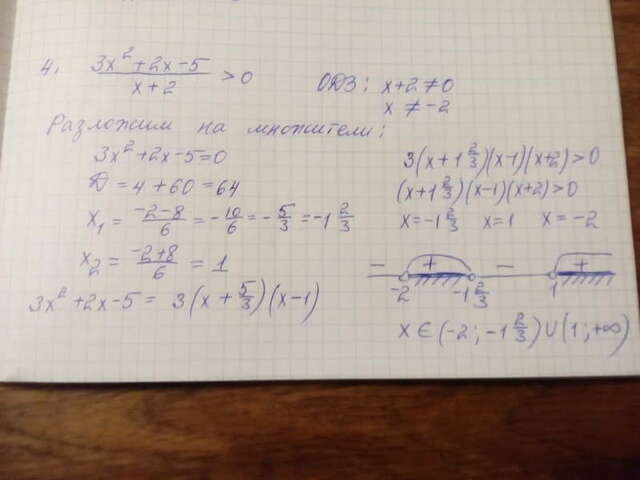 4. (3x² + 2x - 5)/(x + 2) > 0   ОДЗ: x+2 ≠ 0
x ≠ -2
Разложим на множители:
3x² + 2x - 5 = 0
D = 4 + 60 = 64
x₁ = (-2-8)/6 = -10/6 = -5/3 = -1 2/3
x₂ = (-2+8)/6 = 1
3x² + 2x - 5 = 3(x + 5/3)(x - 1)
3(x + 1 2/3)(x-1)(x+2) > 0
(x + 1 2/3)(x-1)(x+2) > 0
x = -1 2/3   x = 1   x = -2
− + − +
-2   -1 2/3   1
x ∈ (-2; -1 2/3) ∪ (1; +∞)